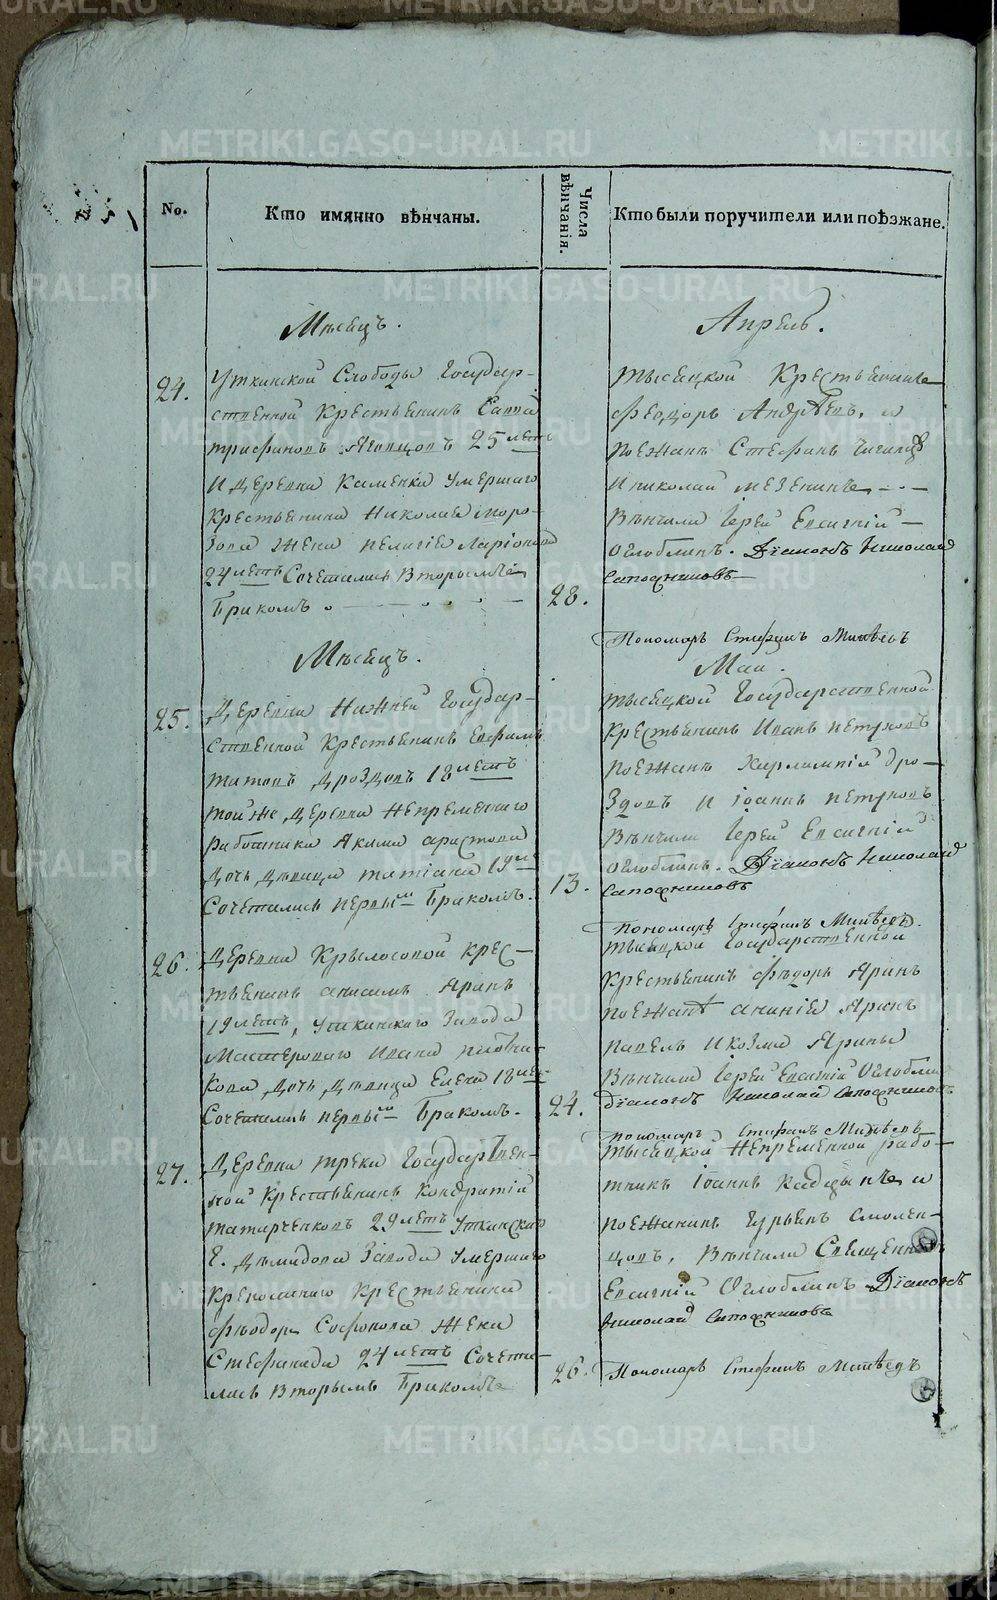 No.
Кто имянно вѣнчаны.
Числа вѣнчанія.
Кто были поручители или поѣзжане.
Мѣсецъ.
24. Уткинской Слободы Государ-
ственной Крестьянинъ Савва
Трифановъ 25 летъ
И деревни Каменки умершаго
Крестьянина Николая Моро-
зова жена Пелагіе Ларіонова
24 летъ Сочетались Вторымъ
Бракомъ.
28.
Апрель.
Тысецкой Крестьянинъ
Феодоръ Андрѣевъ, и
Поезжанъ Стефанъ
И Николай Мезенинъ
Вѣнчали Іерей Евсигній
Оглоблинъ. Діаконъ Николай
Сапожниковъ
Пономарь Стефанъ
Мѣсецъ.
25. Деревни Нижней Государ-
ственной Крестьянинъ Евфимъ
Титовъ Дроздовъ 18 летъ
Той же деревни Непременнаго
Работника Якима Аристова
Дочь девица Татіана 19 ти
Сочетались первымъ Бракомъ.
13.
Маи.
Тысецкой Государственной
Крестьянинъ Иванъ Петуховъ
Поезжанъ Харлампій Дро-
здовъ И Іоаннъ Петуховъ
Вѣнчали Іерей Евсигній
Оглоблинъ. Діаконъ Николай
Сапожниковъ
Пономарь Стефанъ
26. Деревни Крылосовой Крес-
тьянинъ Анисимъ Яринъ
19 летъ, Уткинского Завода
Мастероваго Ивана
кова дочь девица Елена 18 лет
Сочетались первымъ Бракомъ.
24.
Тысецкой Государственной
Крестьянинъ Фѣдоръ Яринъ
Поезжанѣ Ананій Яринъ
Павелъ И Козма Ярины
Вѣнчали Іерей Евсигній Оглоблин
Діаконъ Николай Сапожниковъ
Пономарь Стефанъ
27. Деревни Треки Государствен-
ной Крестьянинъ Кондратій
Татарченковъ 29 летъ Уткинскаго
Г. Демидова Завода Умершаго
Крепоснаго Крестьянина
Феодора Софонова Жена
Стефанида 24 летъ Сочета-
лись Вторымъ Бракомъ
26.
Тысецкой Непременной рабо-
тникъ Іоаннъ и
Поезжанинъ Гурьянъ Смолен-
цовъ. Вѣнчали Священникъ
Евсигній Оглоблинъ Діаконъ
Николай Сапожниковъ
Пономарь Стефанъ
METRIKI.GASO-URAL.RU